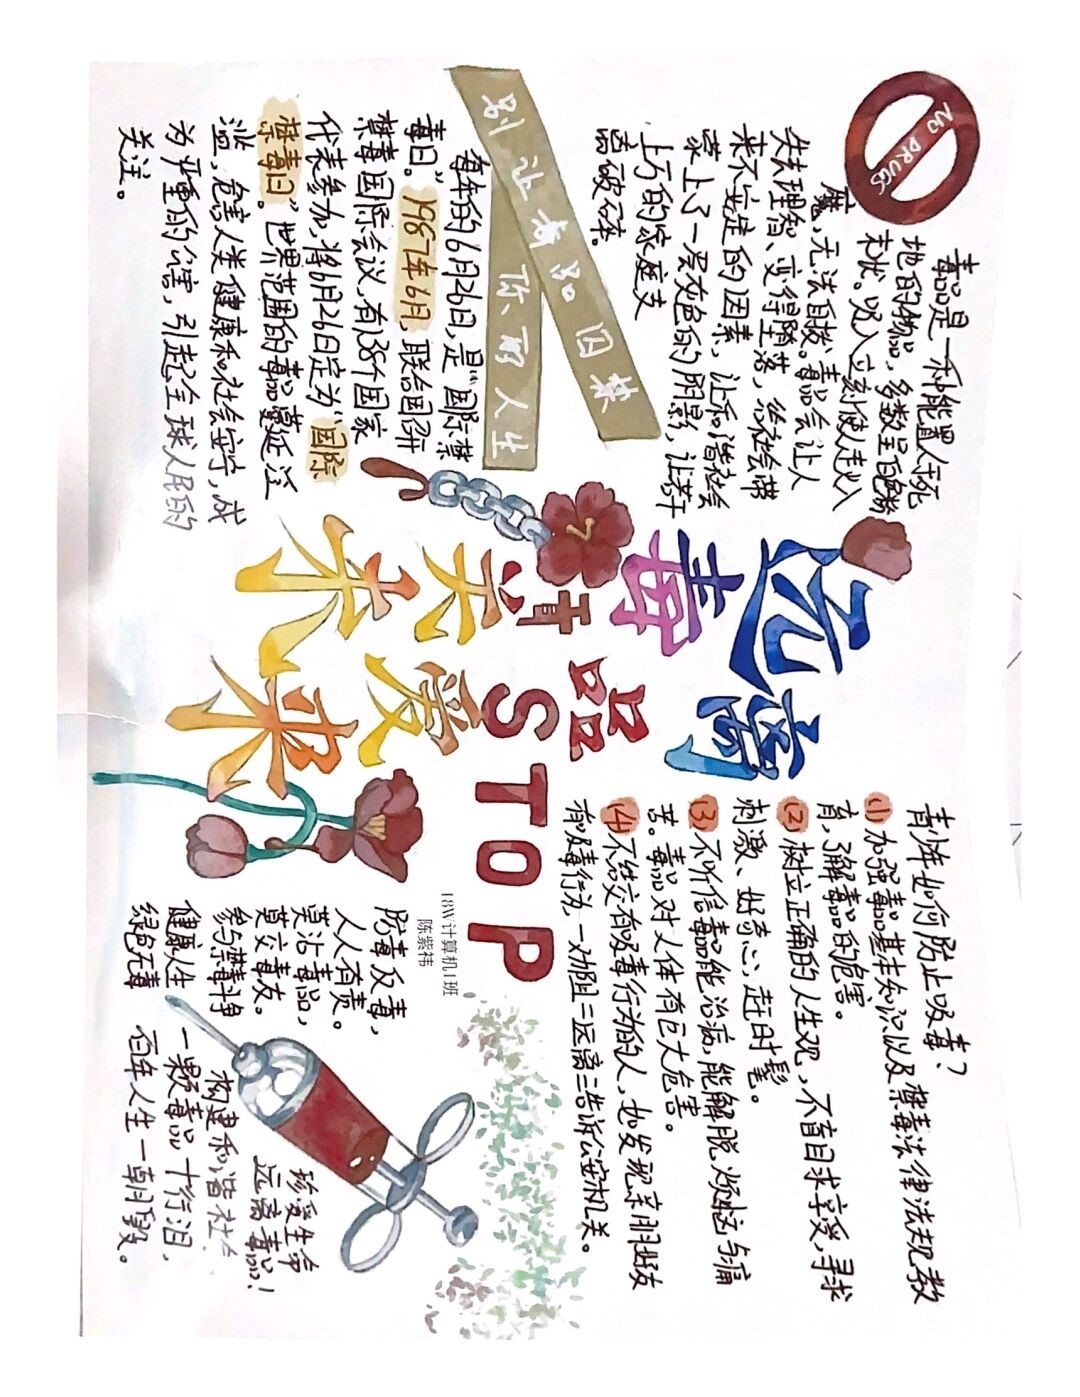 NO DRUGS
毒品是一种能置人于死
地的物品，多数呈白色粉
末状。吸入立刻使人走火入
魔，无法自拔。毒品会让人
失去理智、变得堕落，给社会带
来不安定的因素，让和谐社会
蒙上了一层灰色的阴影，让若干
上万的家庭支
离破碎。
别让毒品囚禁
你的人生
每年的6月26日，是"国际禁
毒日。"1987年6月，联合国召开
禁毒国际会议，有38个国家
代表参加，将6月26日定为"国际
禁毒日。"世界范围的毒品蔓延泛
滥，危害人类健康和社会安宁，成
为严重的公害，引起全球人民的
关注。
远离
毒品
STOP
珍爱
未来
青少年如何防止吸毒？
(1)加强毒品基本知识以及禁毒法律法规教
育，了解毒品的危害。
(2)树立正确的人生观，不盲目求享受，寻求
刺激、好奇心，赶时髦。
(3)不听信毒品能治病，能解脱烦恼与痛
苦。毒品对人体有巨大危害。
(4)不结交有吸毒行为的人，如发现亲朋好友
有吸毒行为，一劝阻二远离三告诉公安机关。
18W计算机1班
陈紫祎
防毒反毒，
人人有责。
莫沾毒品，
莫交毒友。
参与禁毒斗争
健康人生
绿色无毒
珍爱生命
远离毒品！
构建和谐社会
一颗毒品十行泪，
百年人生一朝毁。